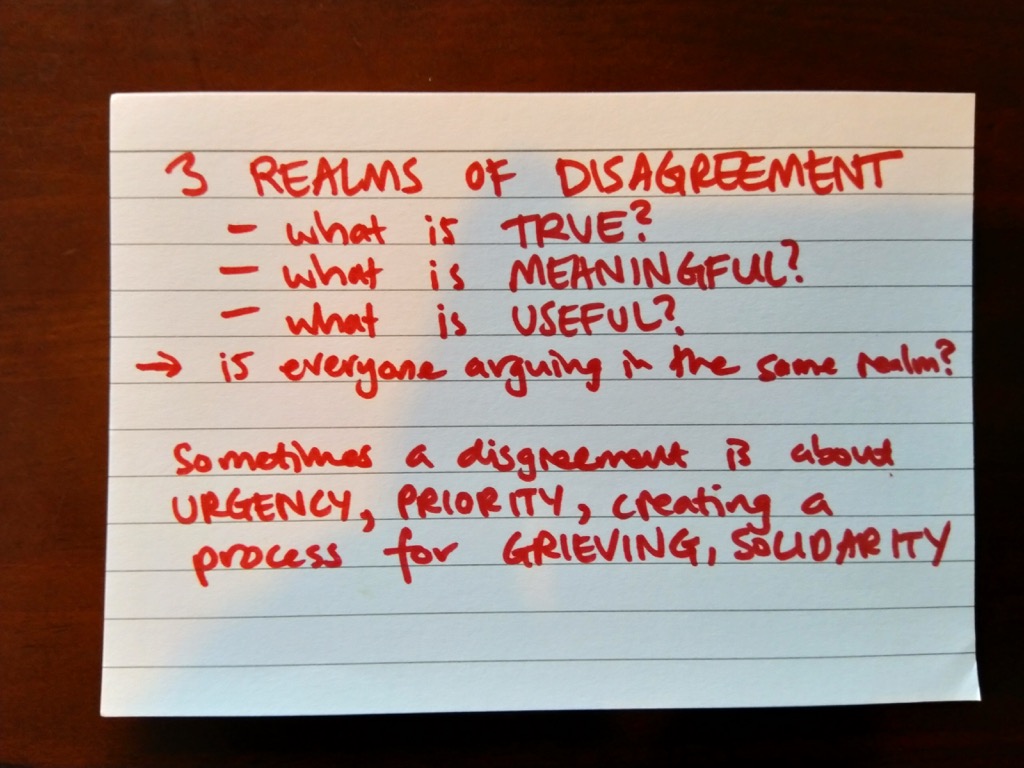 3 REALMS OF DISAGREEMENT
- what is TRUE?
- what is MEANINGFUL?
- what is USEFUL?
→ is everyone arguing in the same realm?
Sometimes a disgreement is about
URGENCY, PRIORITY, creating a
process for GRIEVING, SOLIDARITY